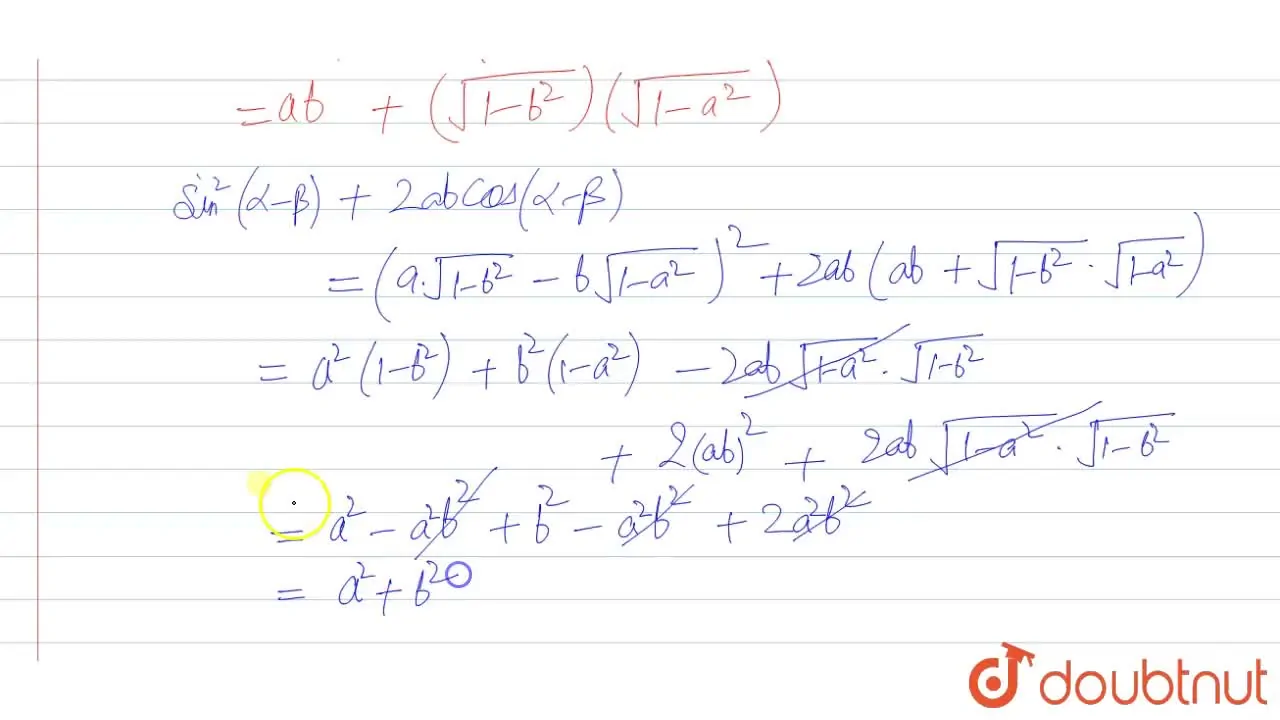 = ab + (√(1-b²))(√(1-a²))
sin²(α-β) + 2ab cos(α-β)
= (a.√(1-b²) - b√(1-a²))² + 2ab(ab + √(1-b²) . √(1-a²))
= a²(1-b²) + b²(1-a²) - 2ab√(1-a²) . √(1-b²)
+ 2(ab)² + 2ab√(1-a²) . √(1-b²)
= a² - a²b² + b² - a²b² + 2a²b²
= a² + b²
doubtnut